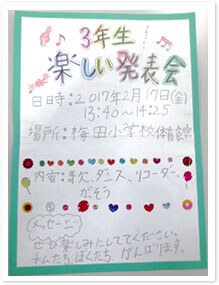 3年生
楽しい発表会
日日時:2017年2月17日(金)
13:40〜14:25
場所:梅田小学校体育館
内容:歌、ダンス、リコーダー、
がっそう
メッセージ
ぜひ楽しみにしててください。
私たち、ぼくたち、がんばります。